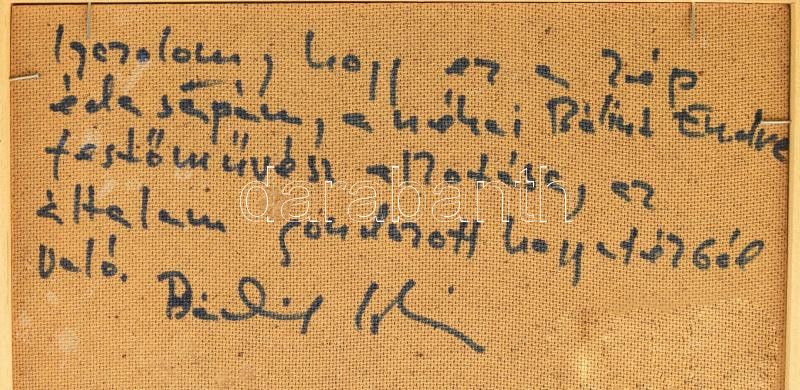 Igazolom, hogy ez a kép
édesapám, a néhai Bálint Endre
festőművész alkotása, az
általam gondozott hagyatékból
való.
Bálint István
darabanth